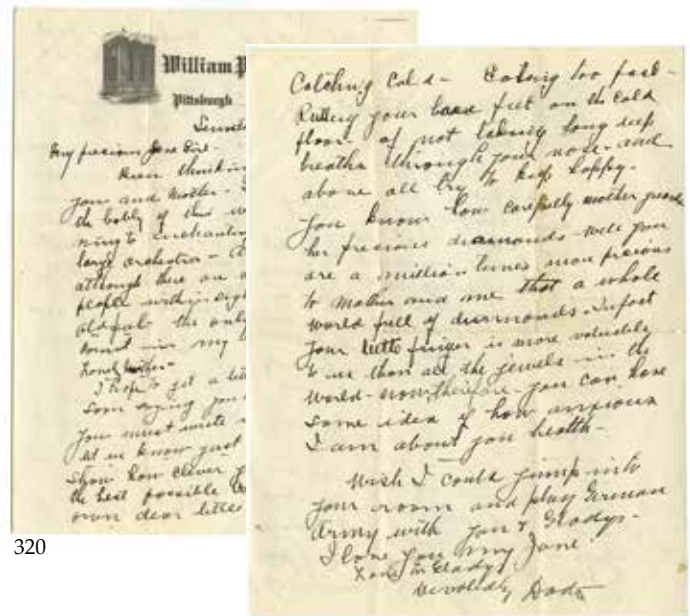 William P
Pittsburgh
My precious Jane Girl -
Been thinkin
you and Mother -
the lobby of this
ning to enchantin
large orchestra -
although there are
people within sigh
the only
in my
lonely Mother -
I hope to get a lett
soon saying you
you must write
let me know just
show how clever
the best possible
own dear little
Catching Cold - Eating too fast -
Putting your bare feet on the cold
floor - of not taking long deep
breaths through your nose - and
above all try to keep happy.
You know how carefully mother guards
her precious diamonds - well you
are a million times more precious
to mother and me than a whole
world full of diamonds - In fact
your little finger is more valuable
to us than all the jewels in the
world - now, therefore - you can have
some idea of how anxious
I am about your health -
Wish I could jump into
your room and play German
Army with you & Gladys -
I love you my Jane
Gladys
Devotedly Dad
320